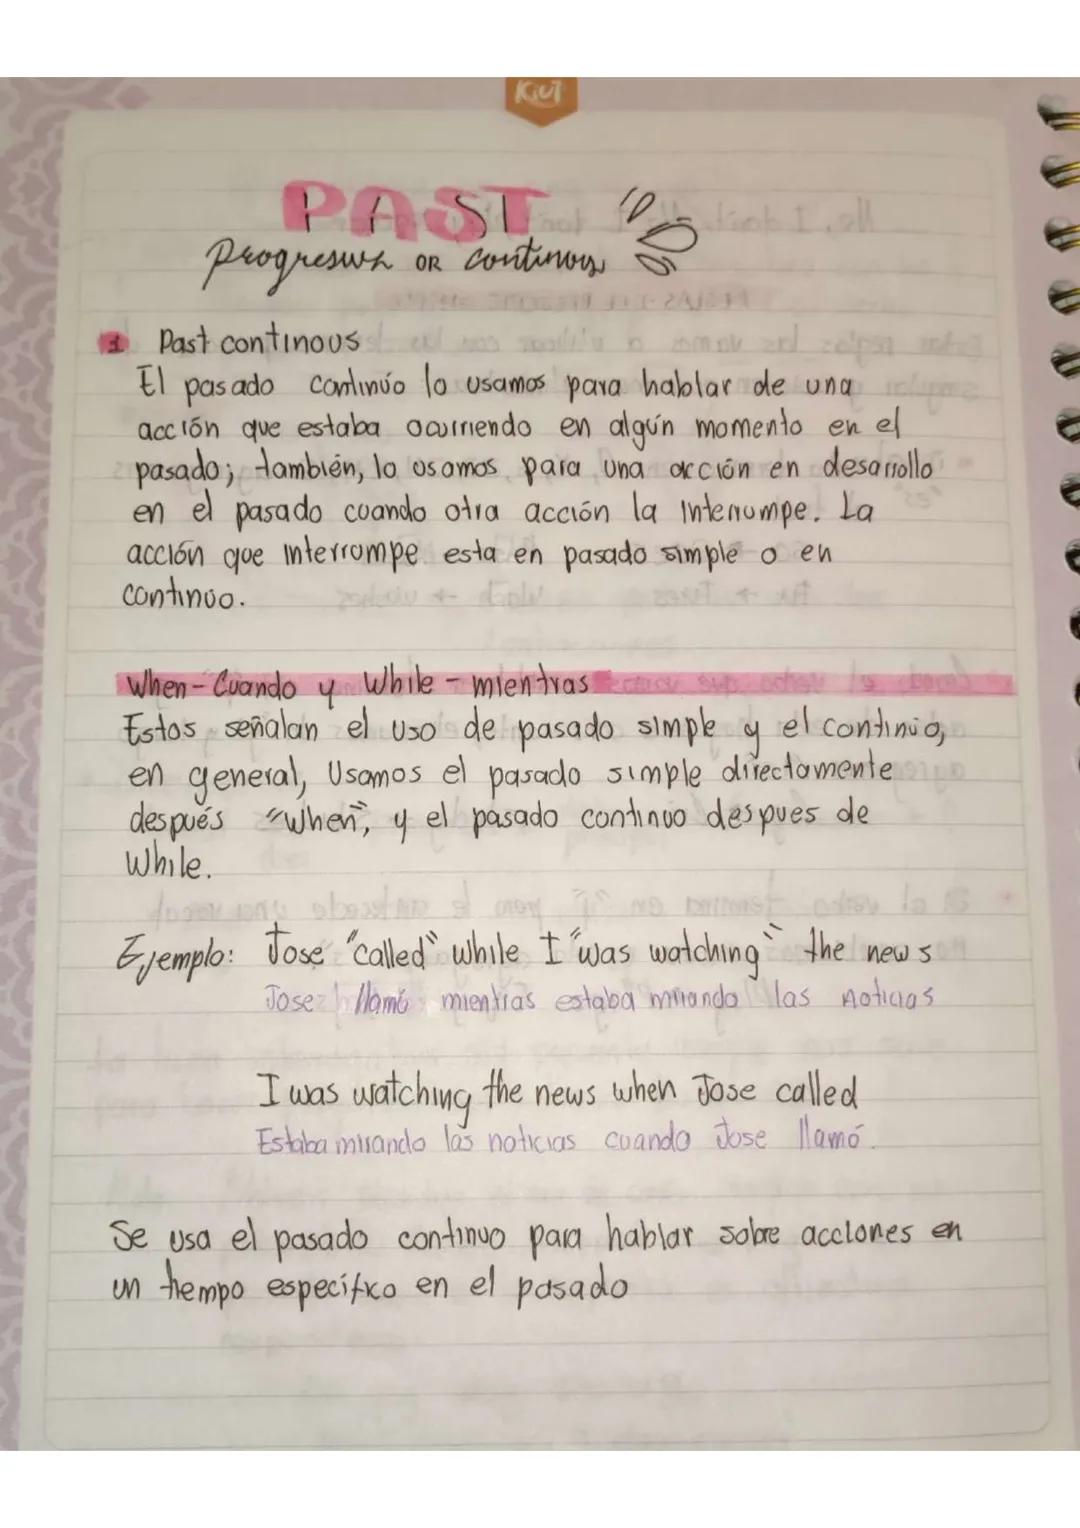 Kiut
PAST
progresive OR continous
1 Past continous
El pasado continúo lo usamos para hablar de una
acción que estaba ocurriendo en algún momento en el
pasado; también, lo usamos para una acción en desarrollo
en el pasado cuando otra acción la interrumpe. La
acción que interrumpe esta en pasado simple o en
continuo.
When - Cuando y While - mientras
Estos señalan el uso de pasado simple y el continuo,
en general, Usamos el pasado simple directamente
después "when", y el pasado continuo despues de
While.
Ejemplo: Jose "called" while I "was watching" the news
Jose llamó mientras estaba mirando las noticias
I was watching the news when Jose called
Estaba mirando las noticias cuando Jose llamó.
Se usa el pasado continuo para hablar sobre acciones en
un tiempo específico en el pasado